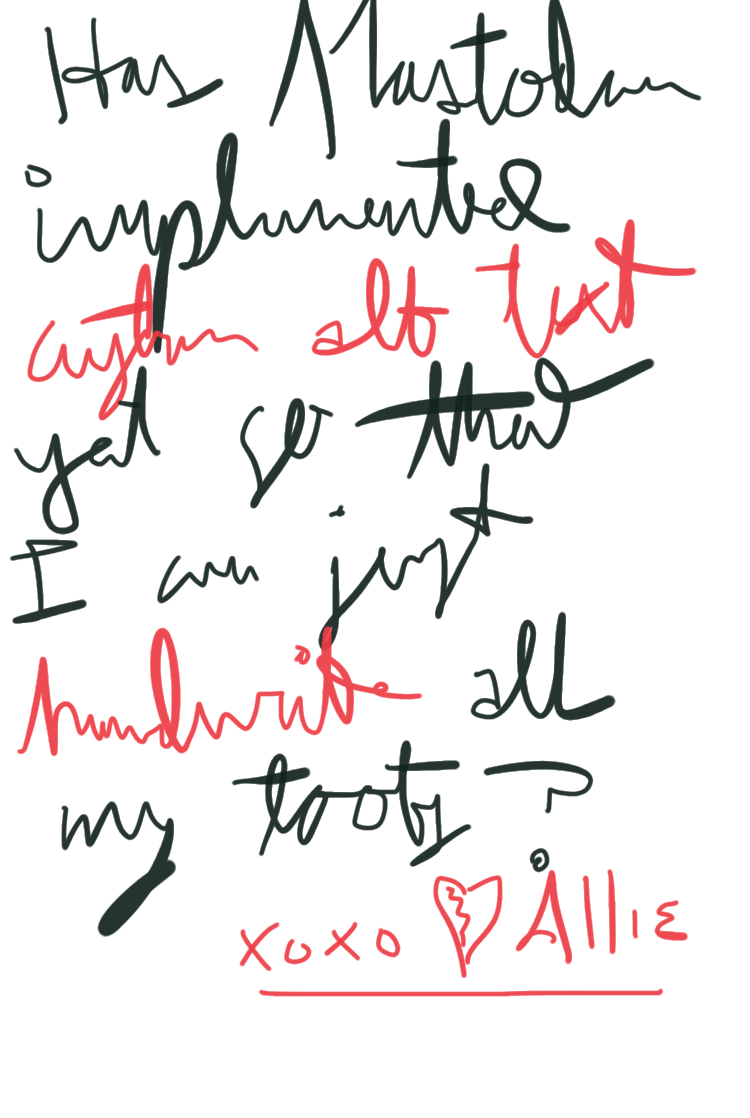 Has Mastodon
implemented
alt text
yet so that
I can just
handwrite all
my toots?
xoxo Allie